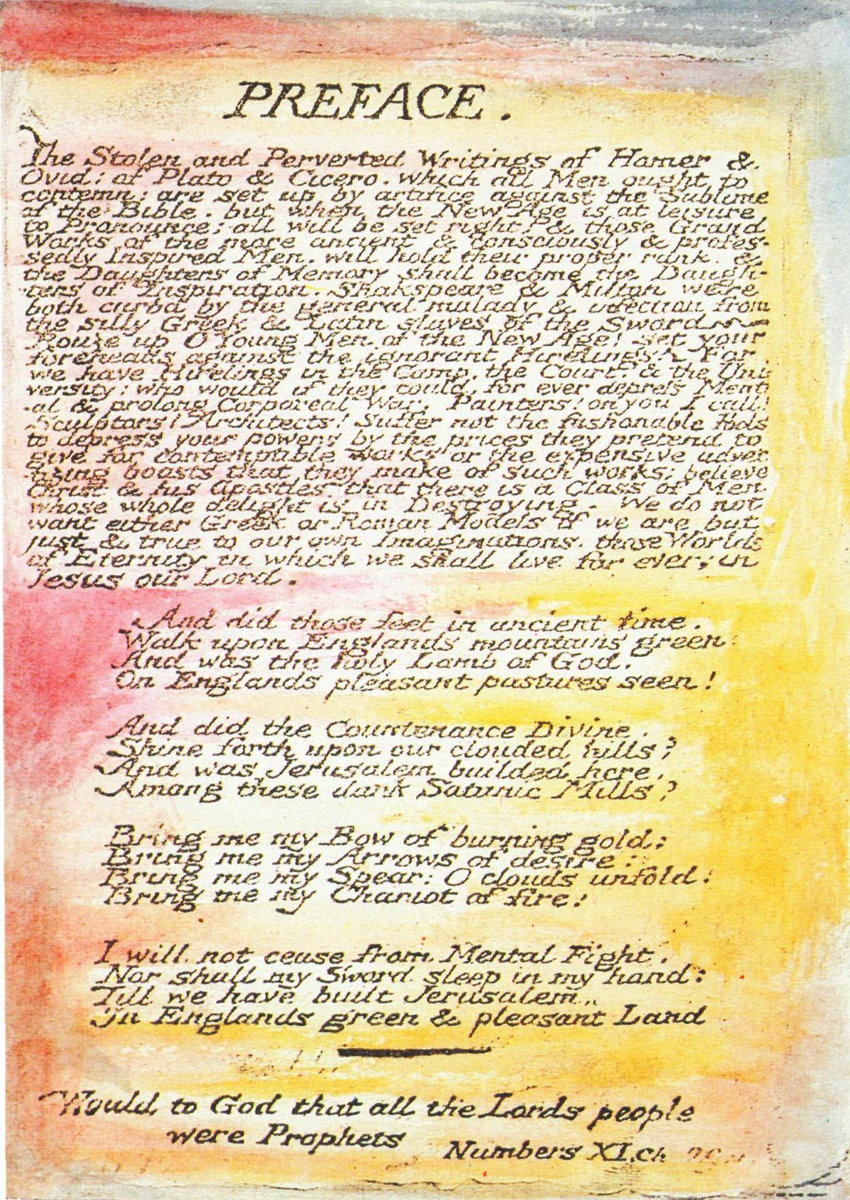 PREFACE.
The Stolen and Perverted Writings of Homer &
Ovid: of Plato & Cicero. which all Men ought to
contemn: are set up by artifice against the Sublime
of the Bible. but when the New Age is at leisure
to Pronounce; all will be set right: & those Grand
Works of the more ancient & consciously & profes-
sedly Inspired Men. will hold their proper rank. &
the Daughters of Memory shall become the Daugh-
ters of Inspiration. Shakspeare & Milton were
both curbd by the general malady & infection from
the silly Greek & Latin slaves of the Sword.
Rouze up O Young Men of the New Age! set your
foreheads against the ignorant Hirelings! For
we have Hirelings in the Camp, the Court, & the Uni
versity: who would if they could, for ever depress Ment
al & prolong Corporeal War. Painters! on you I call!
Sculptors! Architects! Suffer not the fashonable Fools
to depress your powers by the prices they pretend to
give for contemptible works or the expensive adver
tizing boasts that they make of such works; believe
Christ & his Apostles that there is a Class of Men
whose whole delight is in Destroying. We do not
want either Greek or Roman Models if we are but
just & true to our own Imaginations, those Worlds
of Eternity in which we shall live for ever; in
Jesus our Lord.
And did those feet in ancient time.
Walk upon Englands mountains green:
And was the holy Lamb of God.
On Englands pleasant pastures seen!
And did the Countenance Divine.
Shine forth upon our clouded hills?
And was Jerusalem builded here,
Among these dark Satanic Mills?
Bring me my Bow of burning gold:
Bring me my Arrows of desire:
Bring me my Spear: O clouds unfold!
Bring me my Chariot of fire!
I will not cease from Mental Fight.
Nor shall my Sword sleep in my hand:
Till we have built Jerusalem,
In Englands green & pleasant Land
Would to God that all the Lords people
were Prophets
Numbers XI.ch